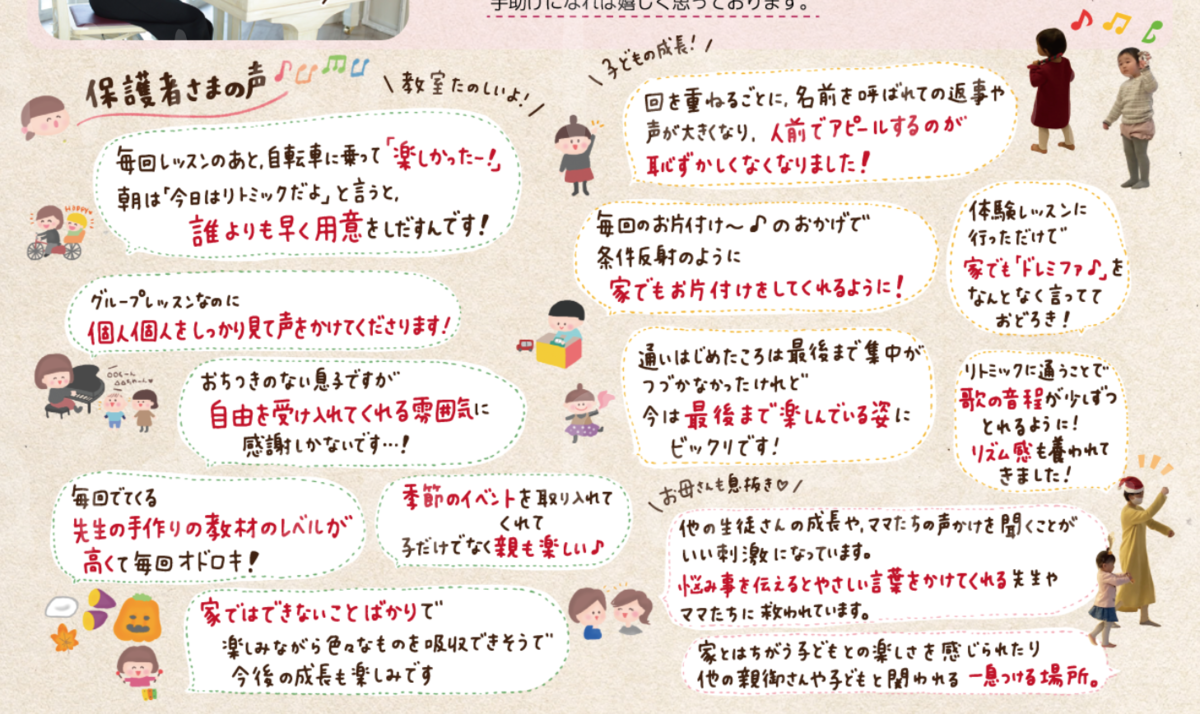 手助けになれば嬉しく思っております。
保護者さまの声
教室たのしいよ!
毎回レッスンのあと、自転車に乗って「楽しかったー!」
朝は「今日はリトミックだよ」と言うと、
誰よりも早く用意をしだすんです!
グループレッスンなのに
個人個人をしっかり見て声をかけてくださります!
おちつきのない息子ですが
自由を受け入れてくれる雰囲気に
感謝しかないです…!
毎回でてくる
先生の手作りの教材のレベルが
高くて毎回オドロキ!
季節のイベントを取り入れて
くれて
子だけでなく親も楽しい♪
家ではできないことばかりで
楽しみながら色々なものを吸収できそうで
今後の成長も楽しみです
子どもの成長!
回を重ねるごとに、名前を呼ばれての返事や
声が大きくなり、人前でアピールするのが
恥ずかしくなくなりました!
毎回のお片付け〜♪のおかげで
条件反射のように
家でもお片付けをしてくれるように!
体験レッスンに
行っただけで
家でも「ドレミファ♪」を
なんとなく言ってて
おどろき!
通いはじめたころは最後まで集中が
つづかなかったけれど
今は最後まで楽しんでいる姿に
ビックリです!
リトミックに通うことで
歌の音程が少しずつ
とれるように!
リズム感も養われて
きました!
お母さんも息抜き♡
他の生徒さんの成長や、ママたちの声かけを聞くことが
いい刺激になっています。
悩み事を伝えるとやさしい言葉をかけてくれる先生や
ママたちに救われています。
家とはちがう子どもとの楽しさを感じられたり
他の親御さんや子どもと関われる一息つける場所。